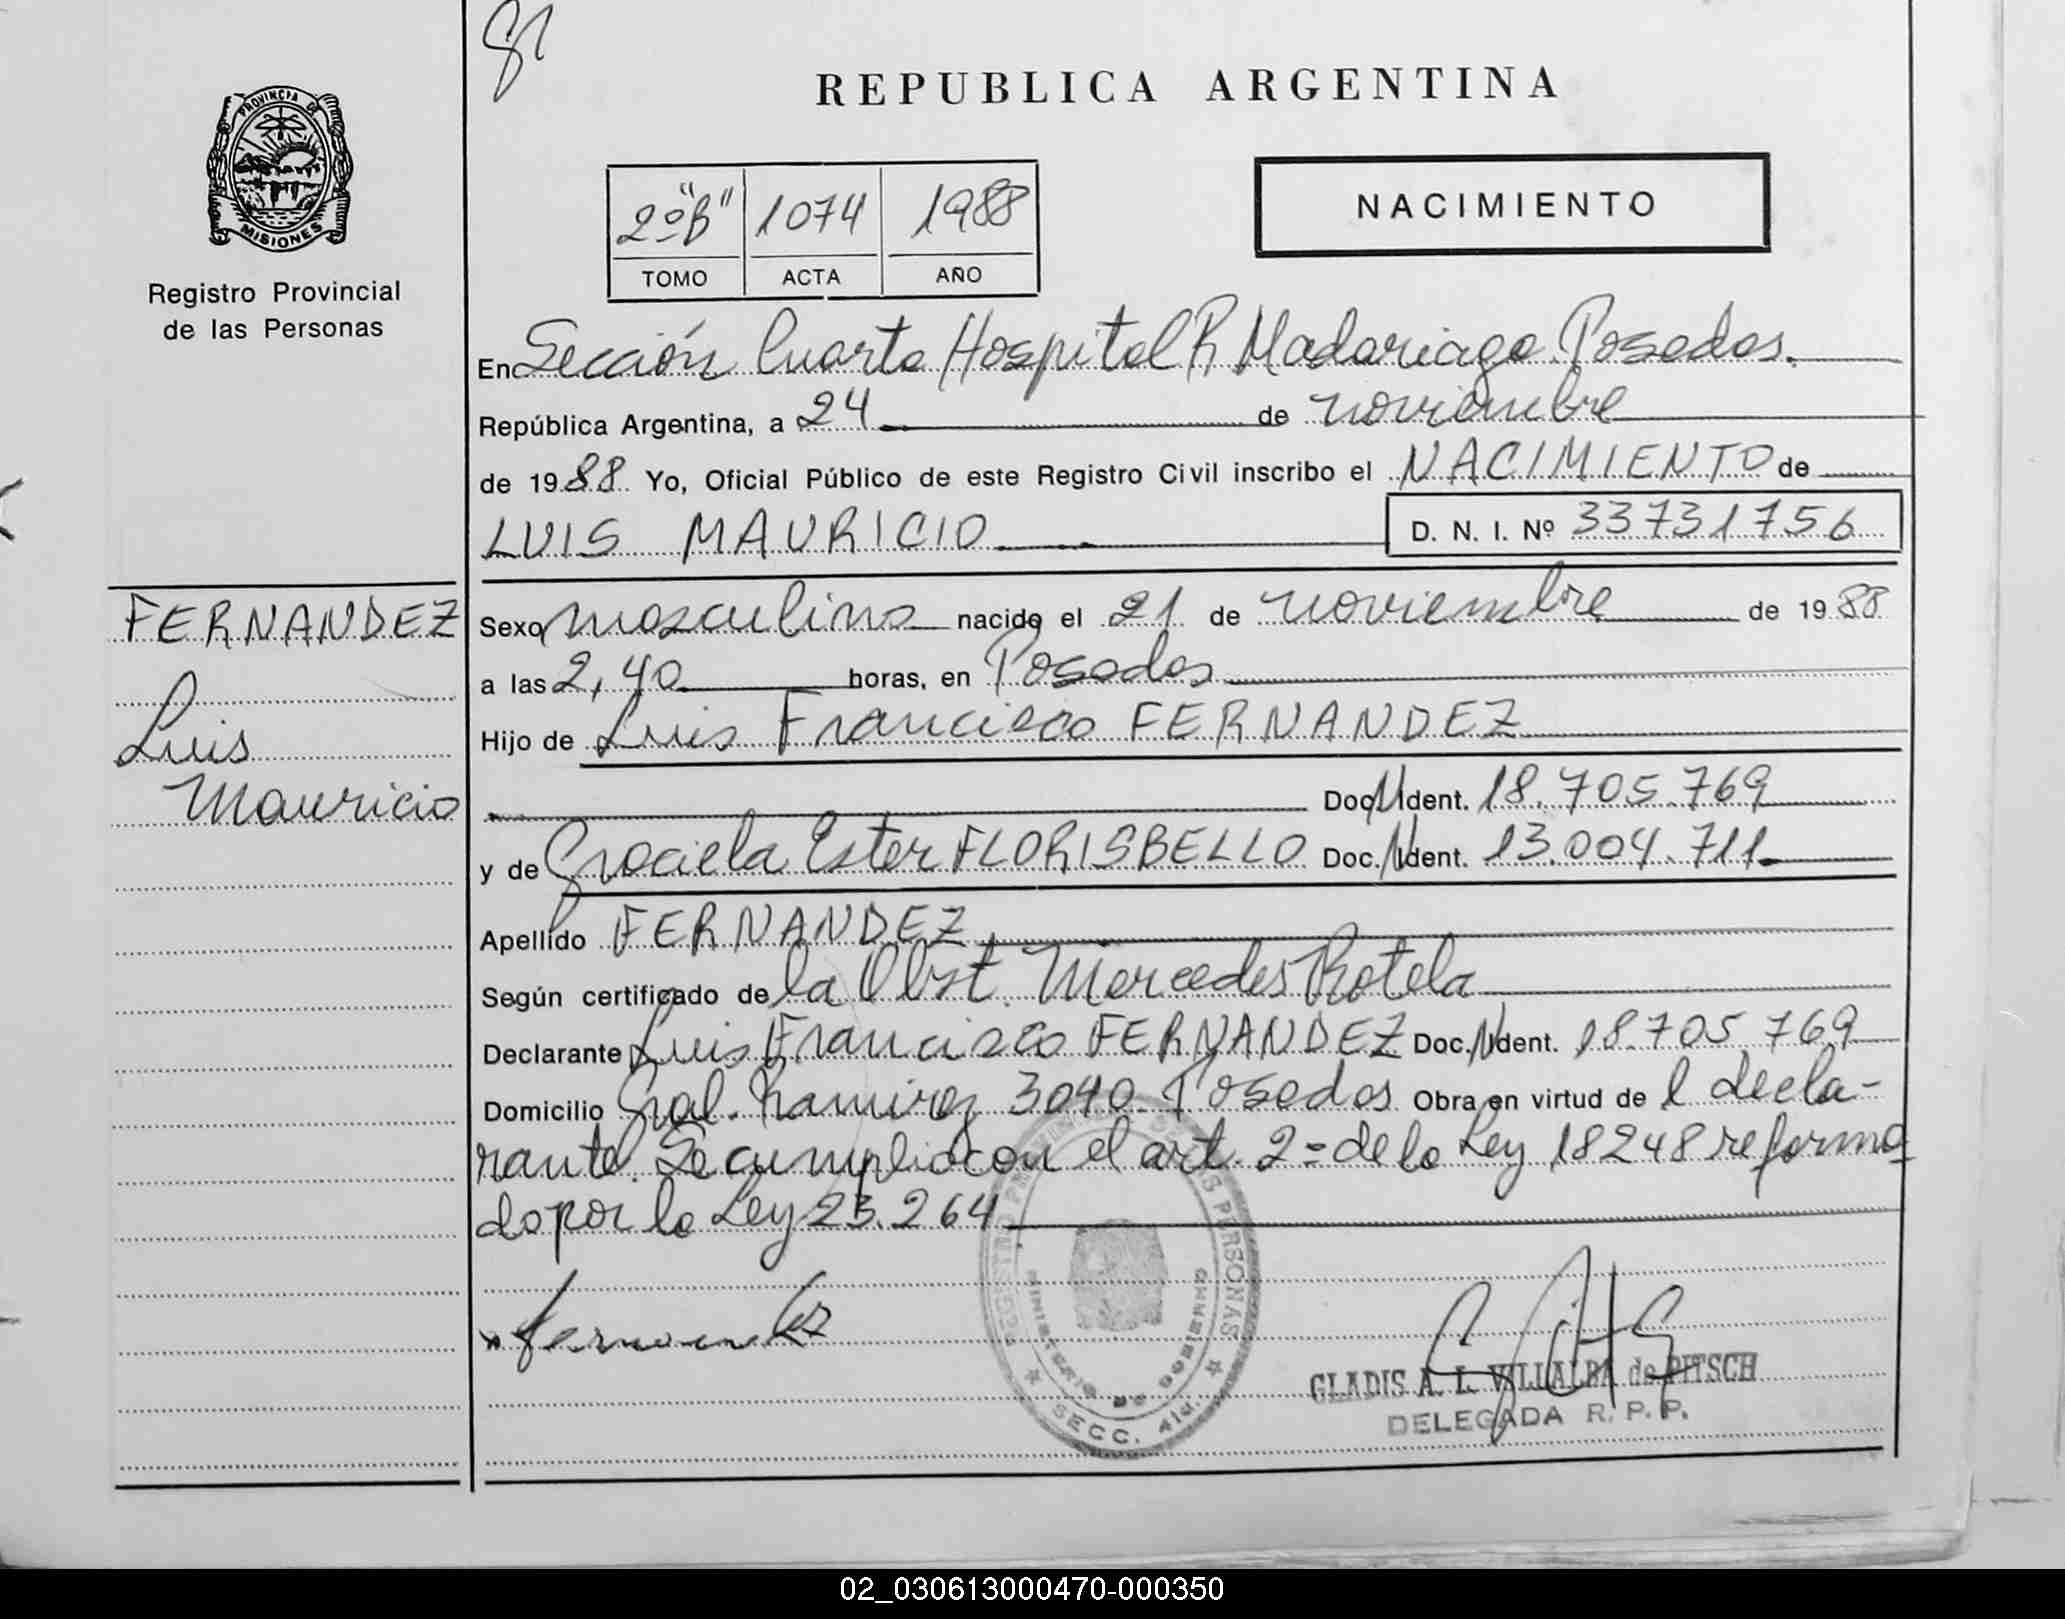 81
REPUBLICA ARGENTINA
PROVINCIA DE
MISIONES
Registro Provincial
de las Personas
2º "B" 1074 1988
TOMO ACTA AÑO
NACIMIENTO
En Sección Cuarta Hospital R Madariaga Posadas.
República Argentina, a 24 de noviembre
de 1988 Yo, Oficial Público de este Registro Civil inscribo el NACIMIENTO de
LUIS MAURICIO D. N. I. Nº 33731756
FERNANDEZ
Luis
Mauricio
Sexo masculino nacido el 21 de noviembre de 1988
a las 2,40 horas, en Posadas
Hijo de Luis Francisco FERNANDEZ
Doc. Ident. 18.705.769
y de Graciela Ester FLORISBELLO Doc. Ident. 13.004.711
Apellido FERNANDEZ
Según certificado de la Obst. Mercedes Rotela
Declarante Luis Francisco FERNANDEZ Doc. Ident. 18.705.769
Domicilio Gral. Ramirez 3040 Posadas Obra en virtud de l decla-
rante. Se cumplio con el art. 2º de la Ley 18248 reforma
do por la Ley 23.264
Fernandez
REGISTRO PROVINCIAL DE LAS PERSONAS
MINISTERIO DE GOBIERNO
SECC. 4ta.
GLADIS A. L. VILLALBA de PITSCH
DELEGADA R. P. P.
02_030613000470-000350